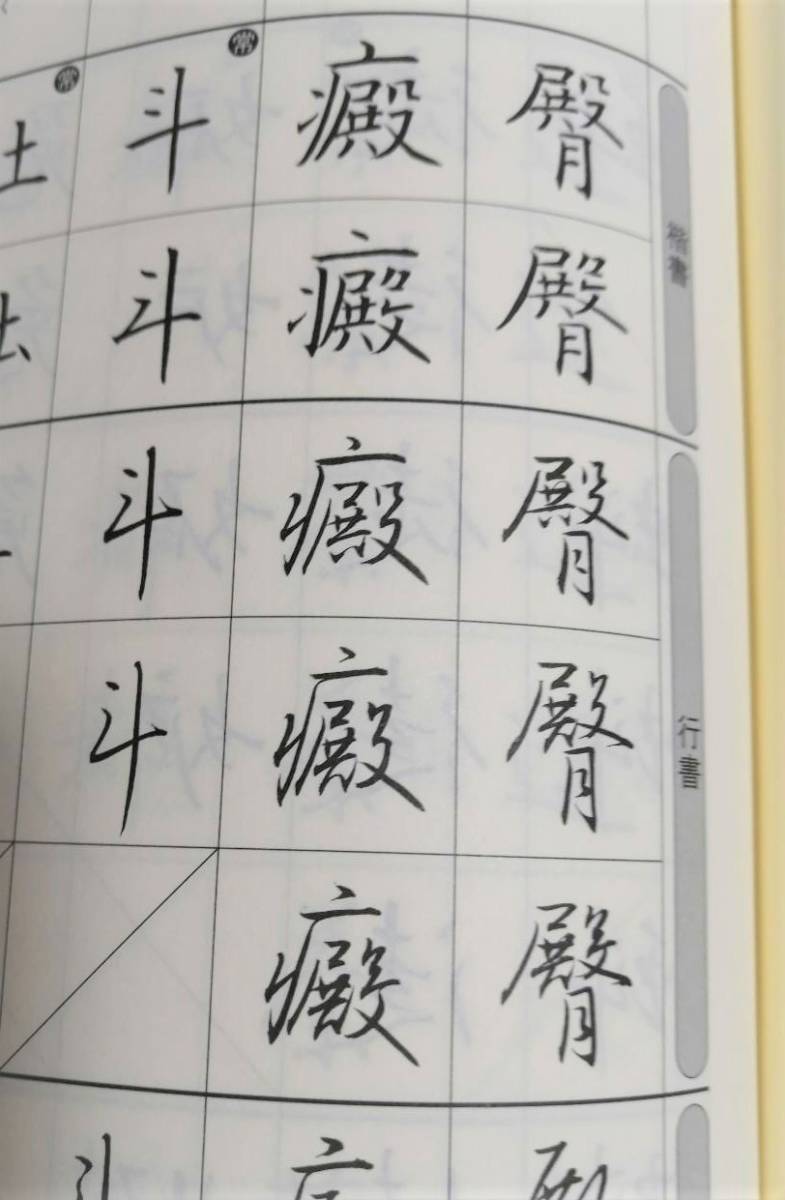 楷書
行書
臀
臀
臀
臀
臀
癜
癜
癜
癜
癜
常
斗
斗
斗
斗
常